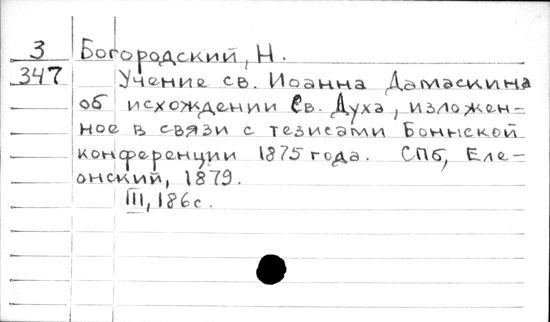 3 Богородский, Н.
347 Учение св. Иоанна Дамаскина
об исхождении Св. Духа, изложен-
ное в связи с тезисами Боннской
конференции 1875 года. СПб, Еле-
онский, 1879.
III, 186 с.